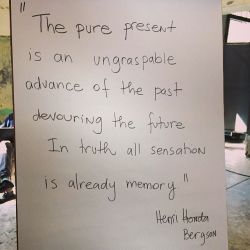 "The pure present
is an ungraspable
advance of the past
devouring the future
In truth all sensation
is already memory"
Henri Bergson